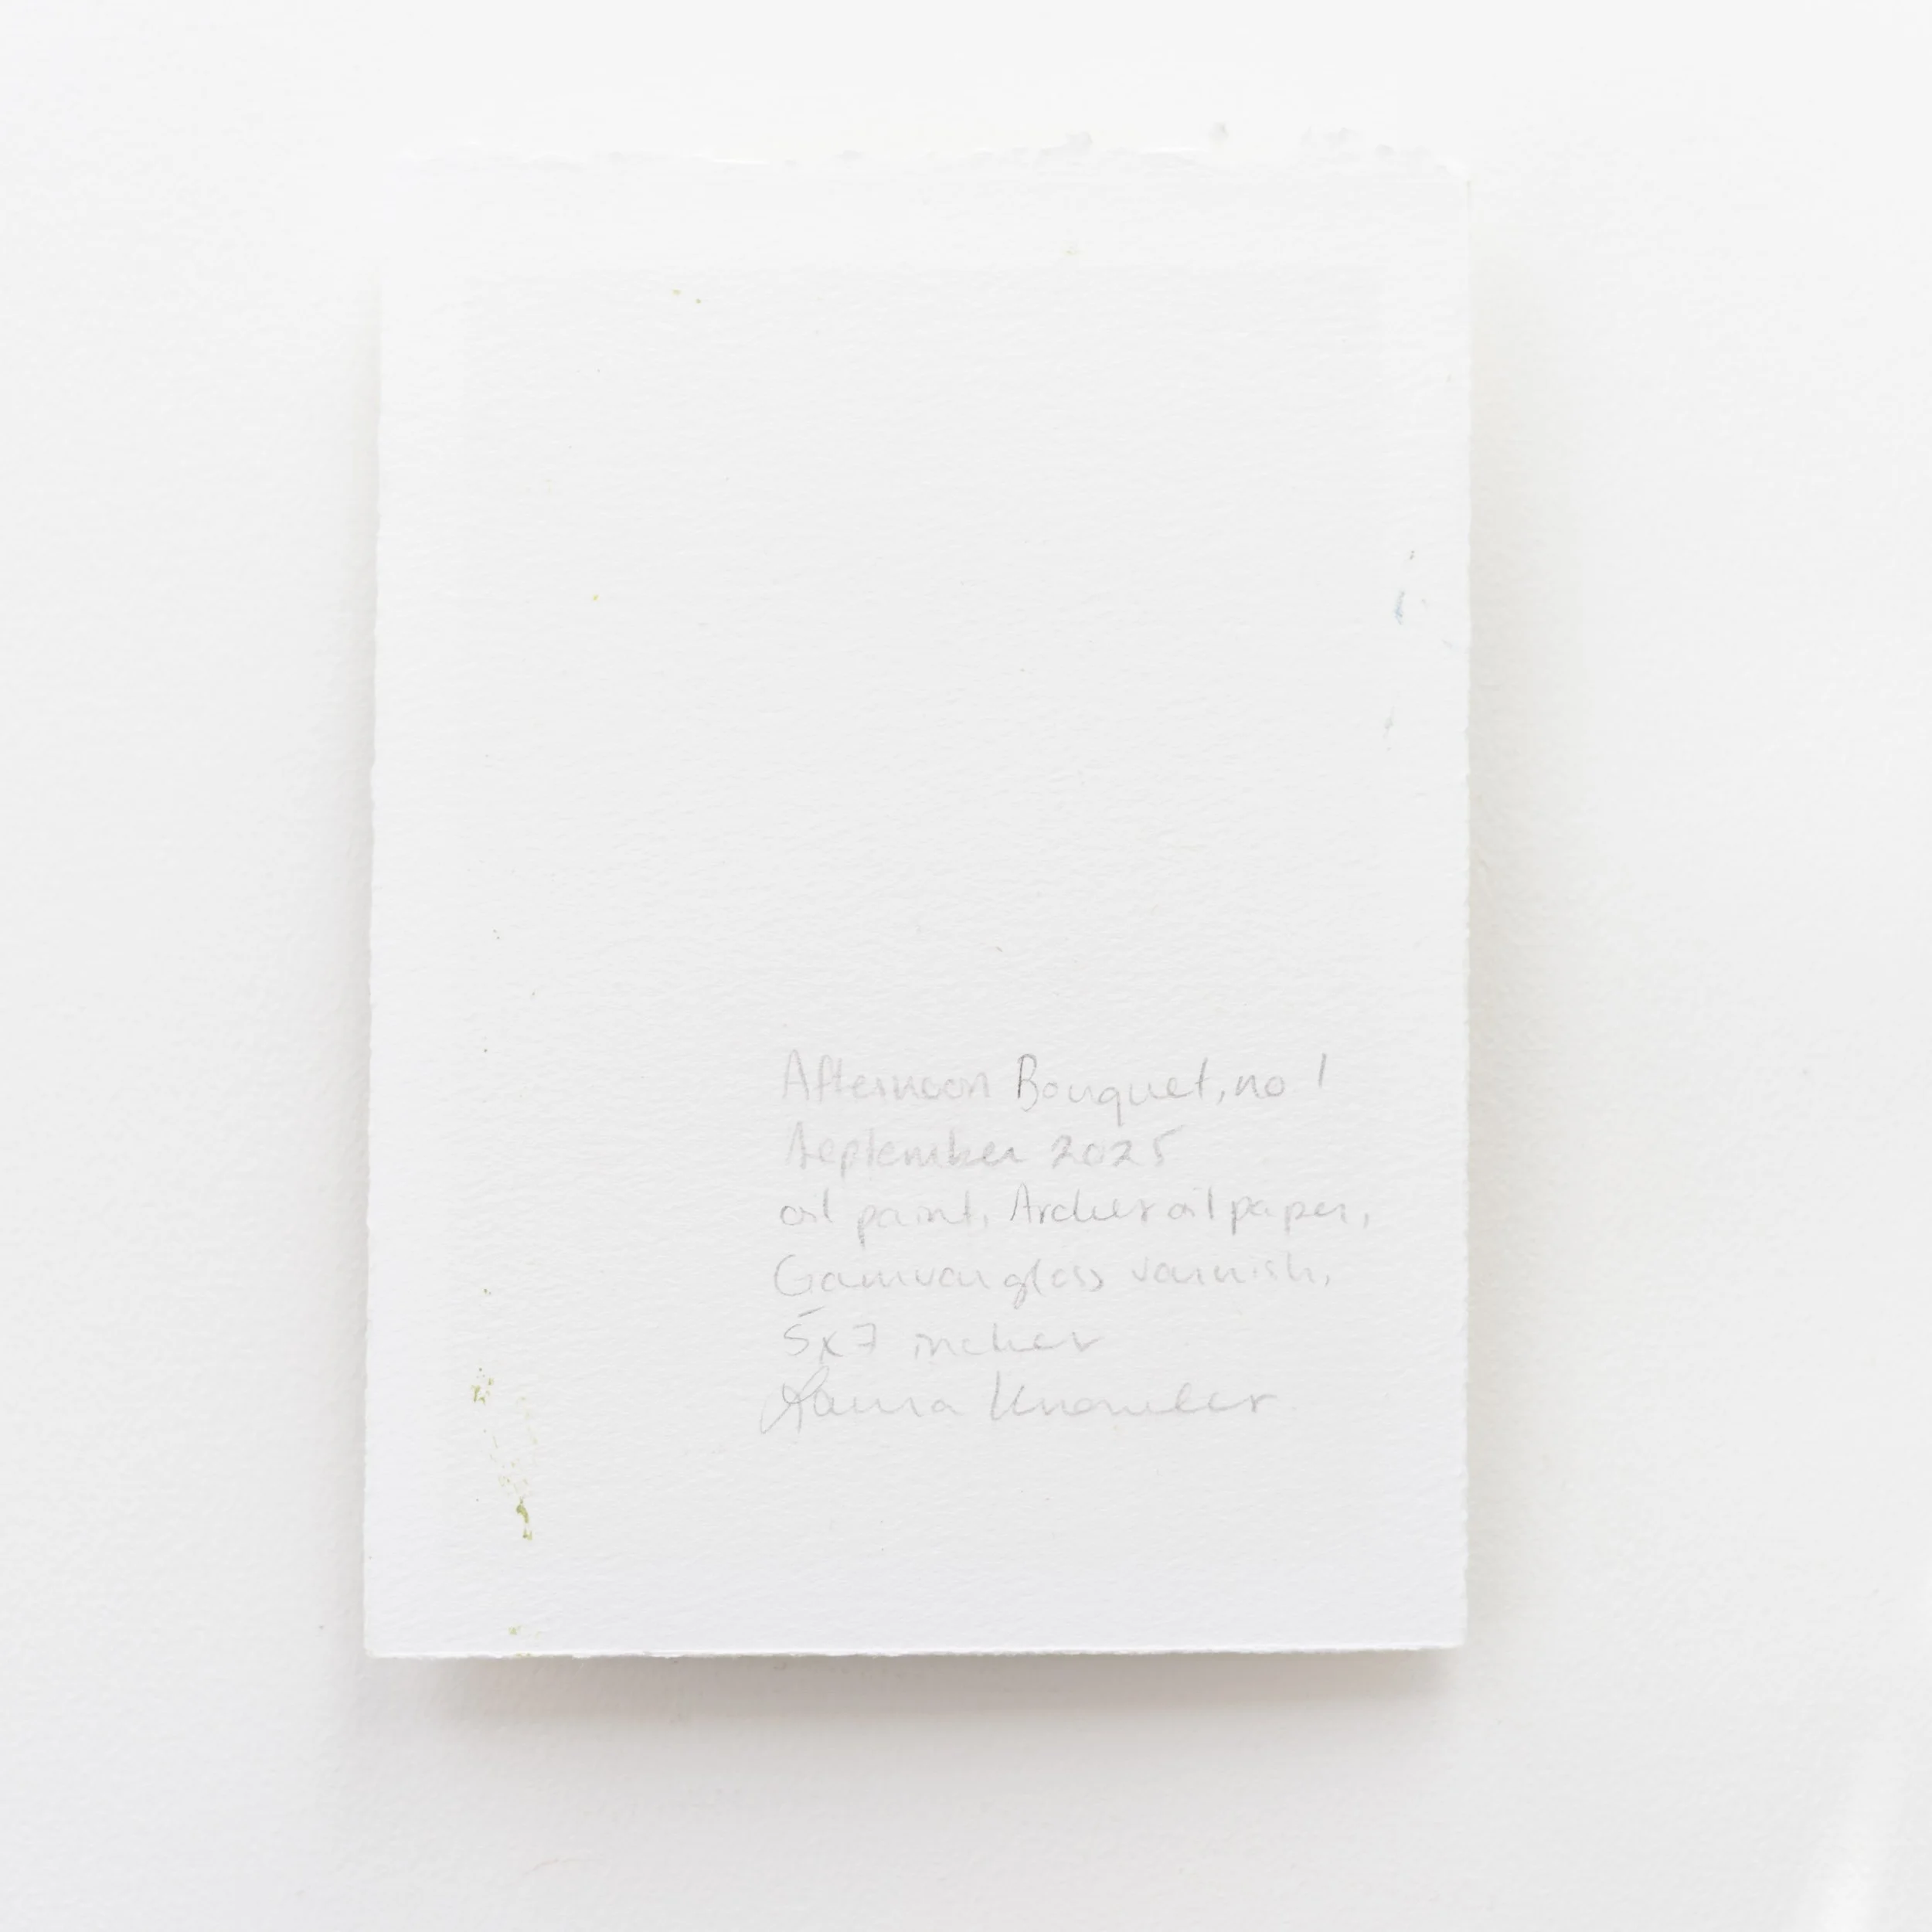 Afternoon Bouquet, no 1
September 2025
oil paint, Arches oil paper,
Gamvar gloss varnish,
5x7 inches
Laura Knowles